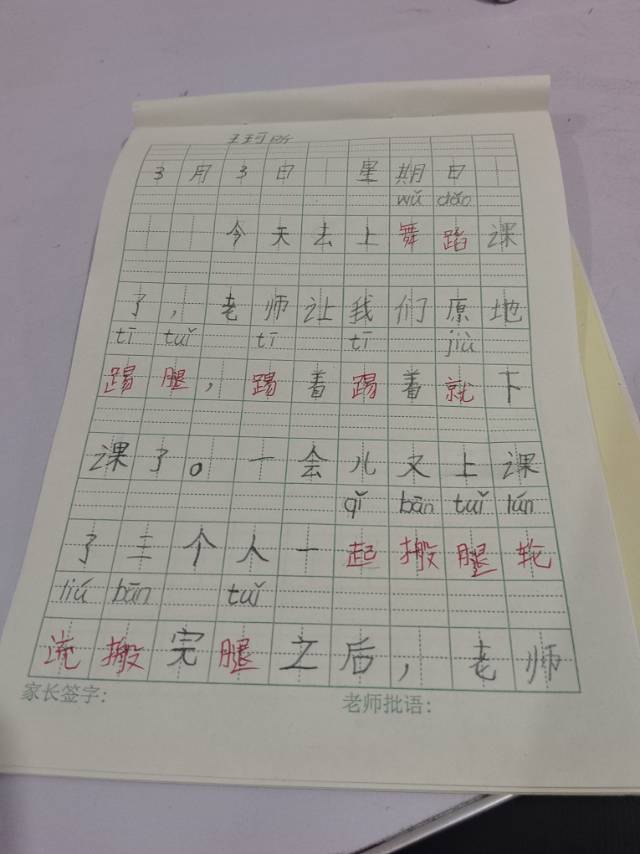 王珂昕
3月3日 星期日
wǔ dǎo
今天去上舞蹈课
了，老师让我们原地
tī tuǐ tī tī jiù
踢腿，踢着踢着就下
课了。一会儿又上课
qǐ bān tuǐ lún
了三个人一起搬腿轮
liú bān tuǐ
流搬完腿之后，老师
家长签字： 老师批语：